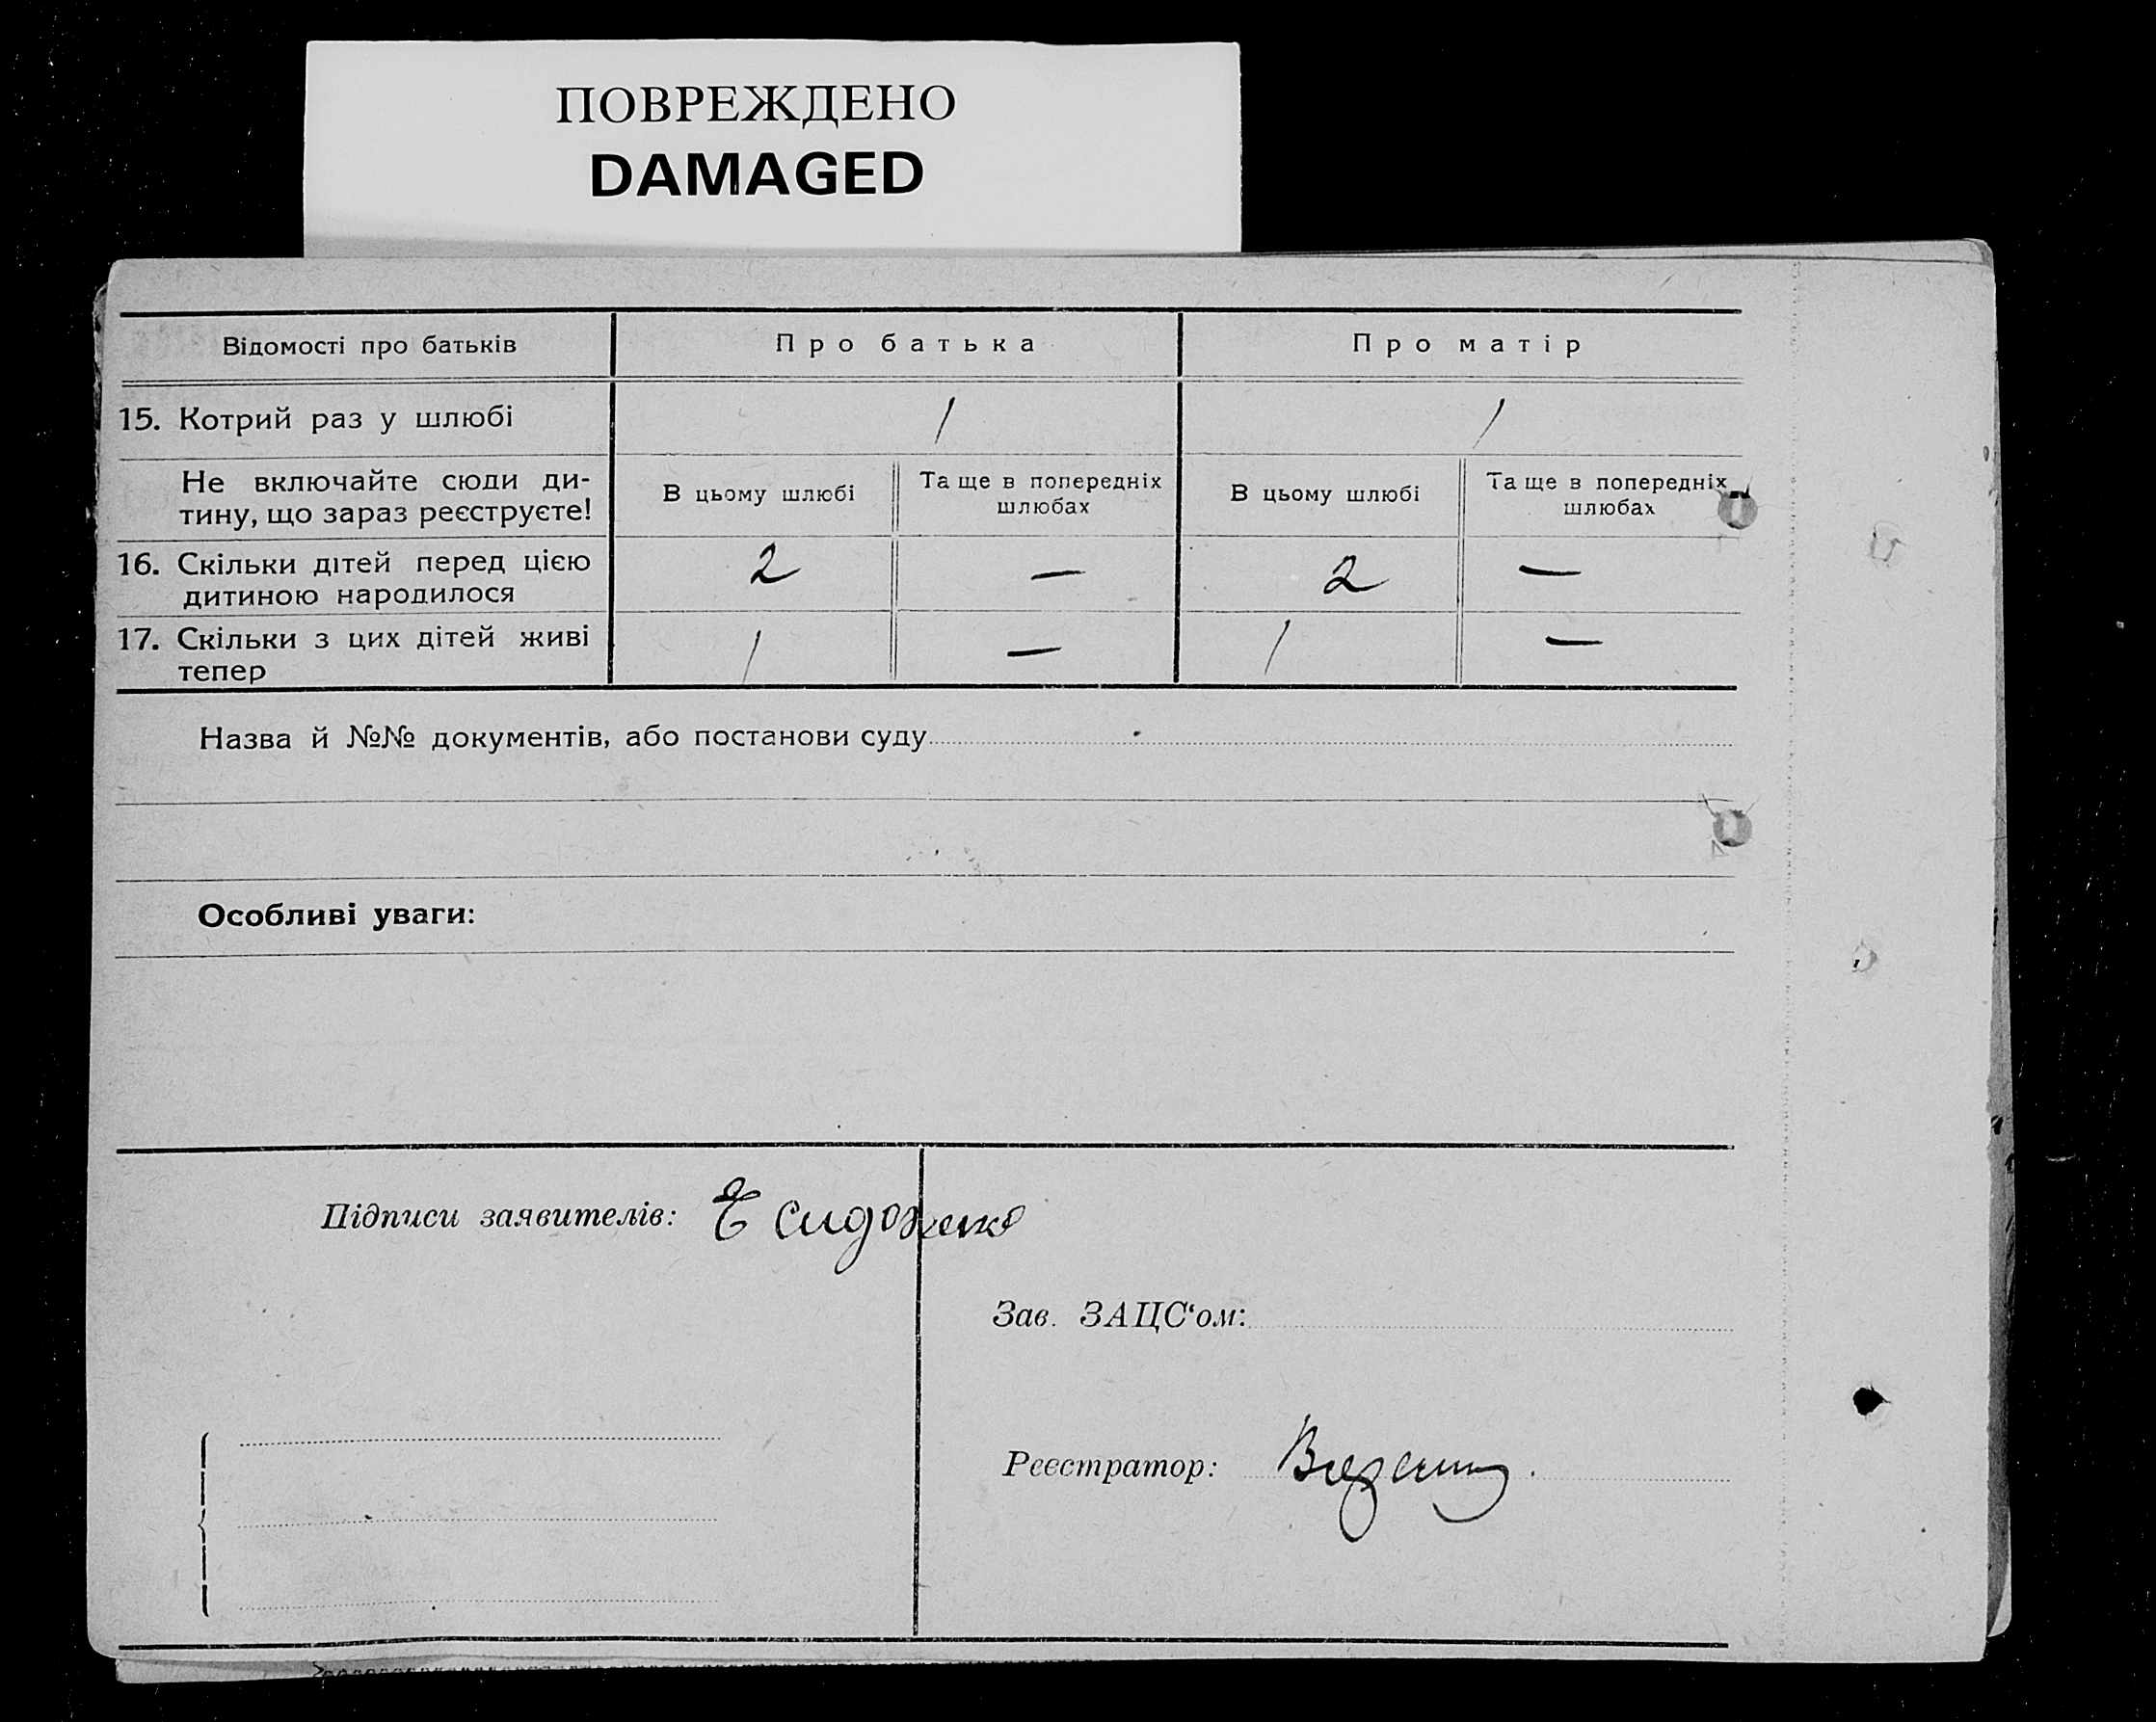 ПОВРЕЖДЕНО
DAMAGED
Відомості про батьків
Про батька
Про матір
15. Котрий раз у шлюбі
1
1
Не включайте сюди ди-
тину, що зараз реєструєте!
В цьому шлюбі
Та ще в попередніх
шлюбах
В цьому шлюбі
Та ще в попередніх
шлюбах
16. Скільки дітей перед цією
дитиною народилося
2
—
2
—
17. Скільки з цих дітей живі
тепер
1
—
1
—
Назва й №№ документів, або постанови суду
Особливі уваги:
Підписи заявителів:
Зав. ЗАЦС‘ом:
Реєстратор: